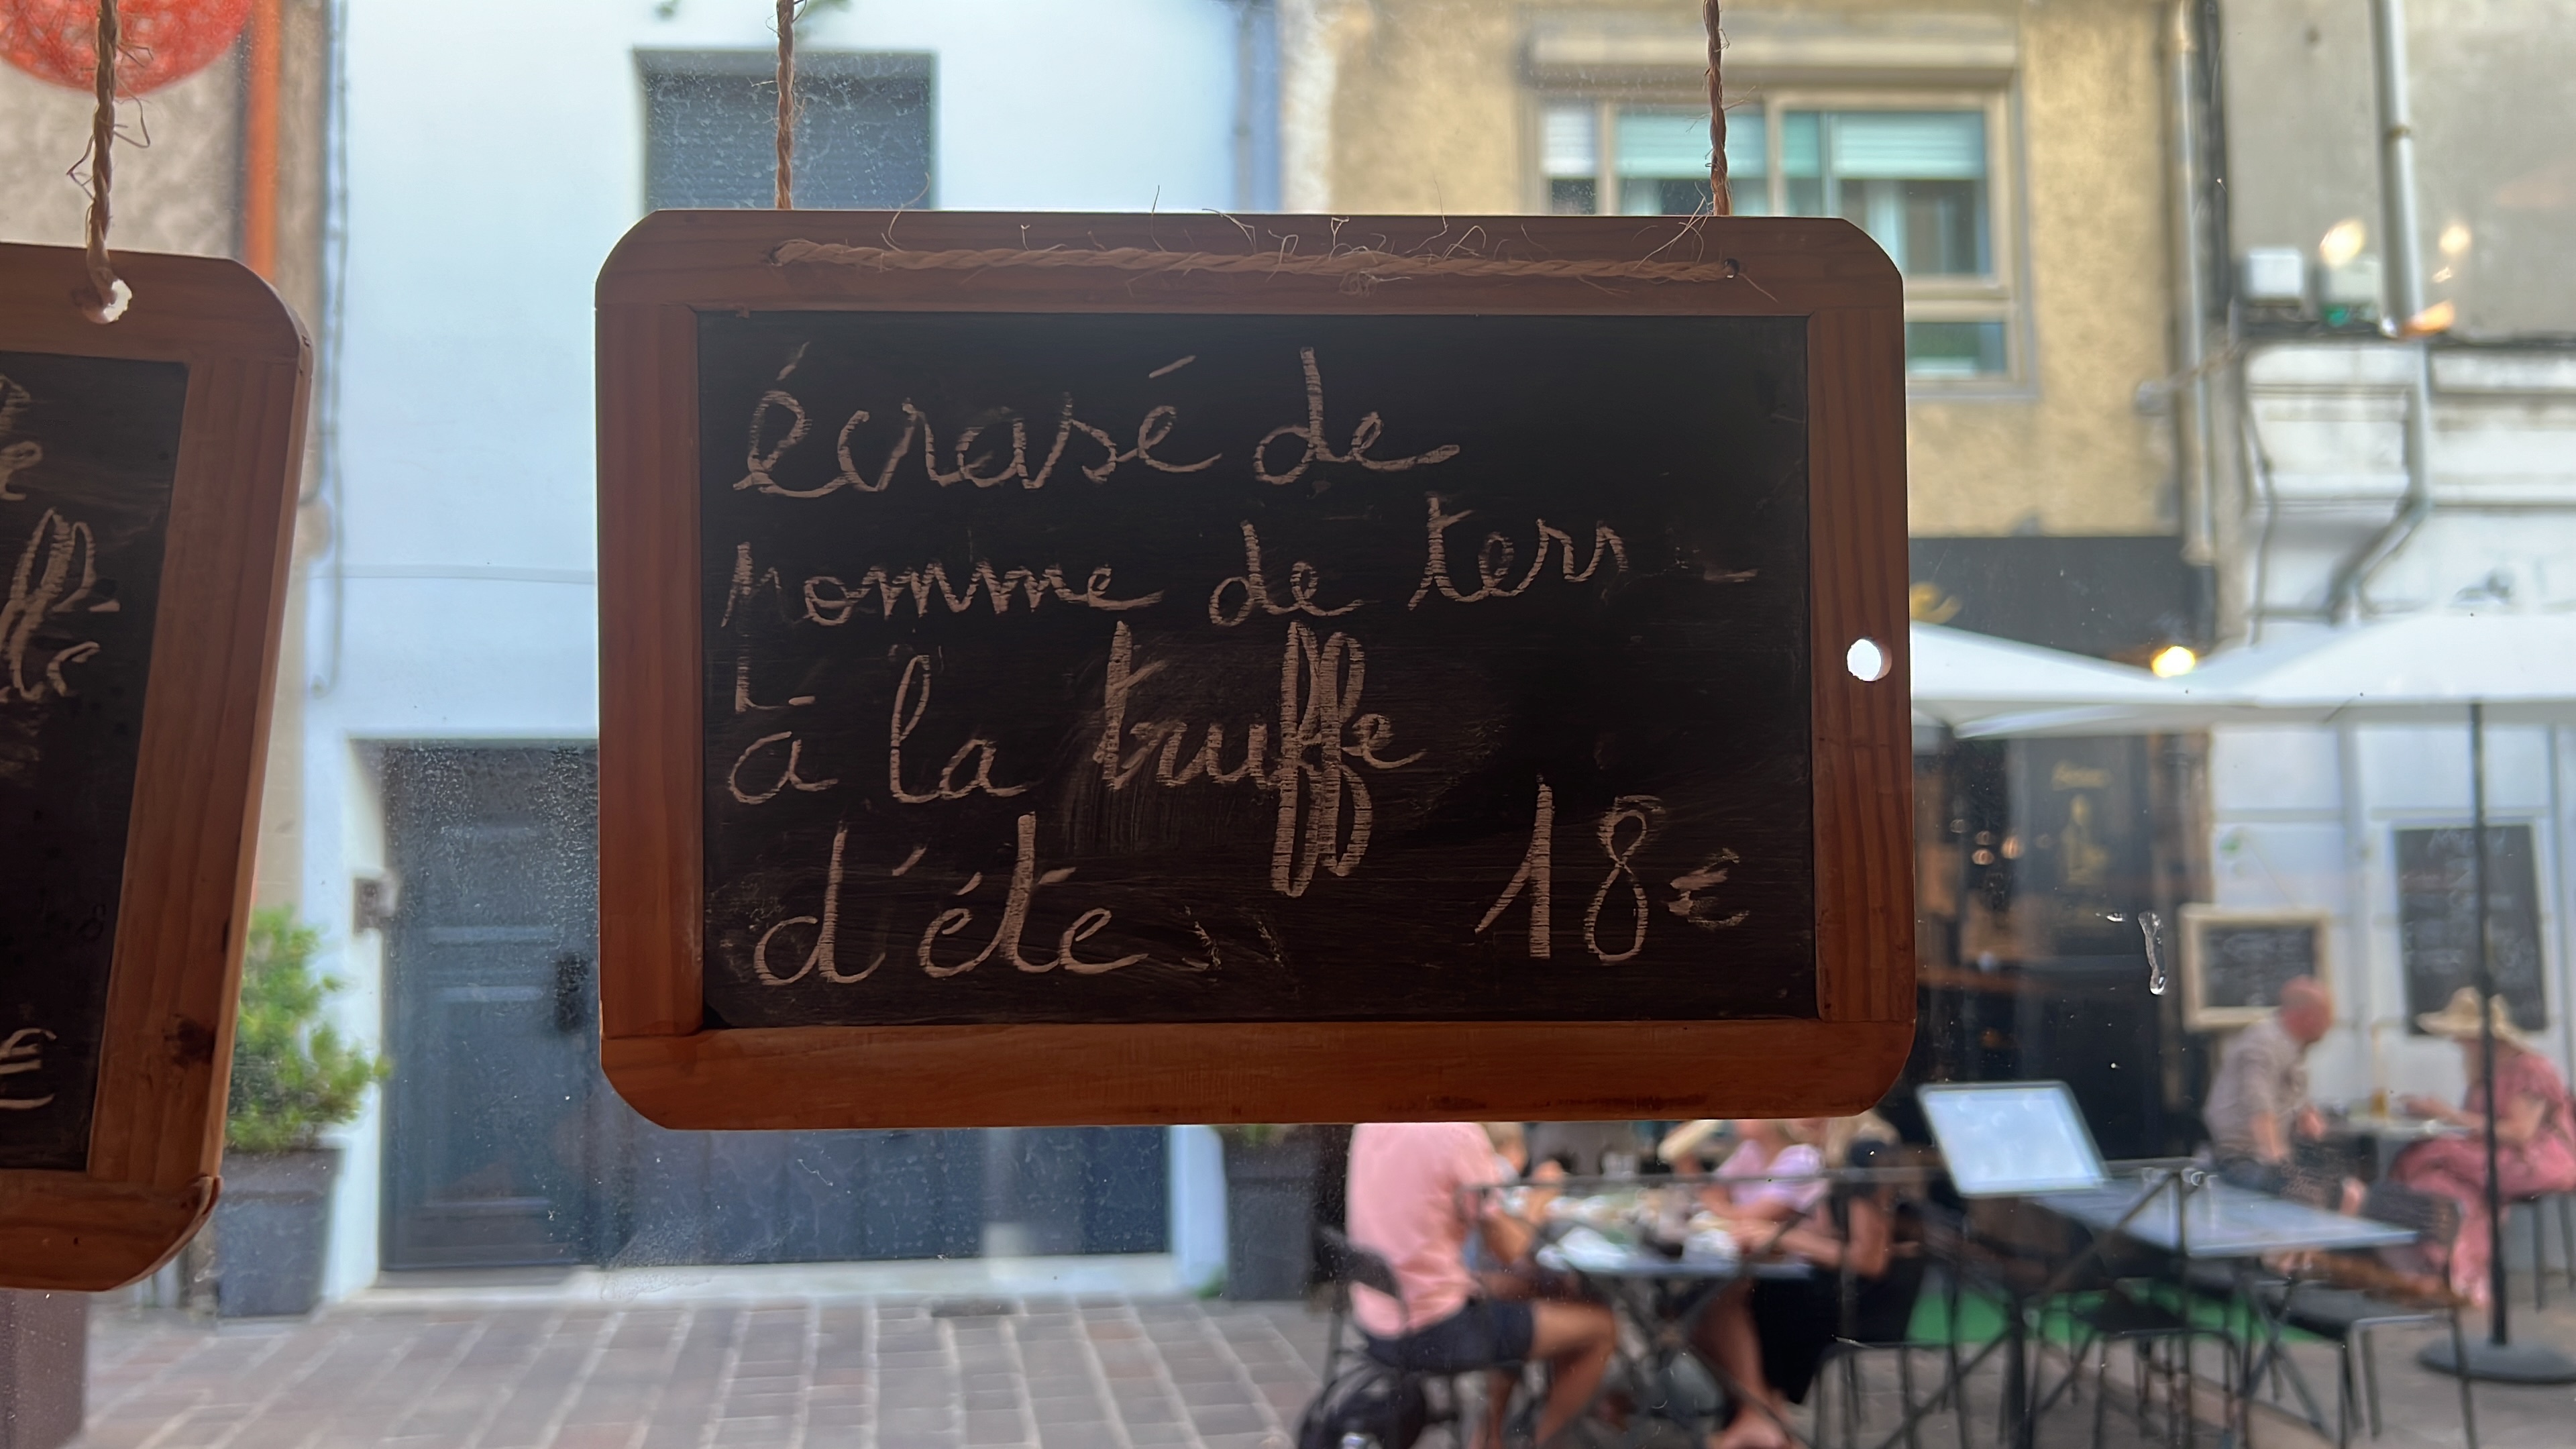 écrasé de
pomme de terr
à la truffe
d'été
18€